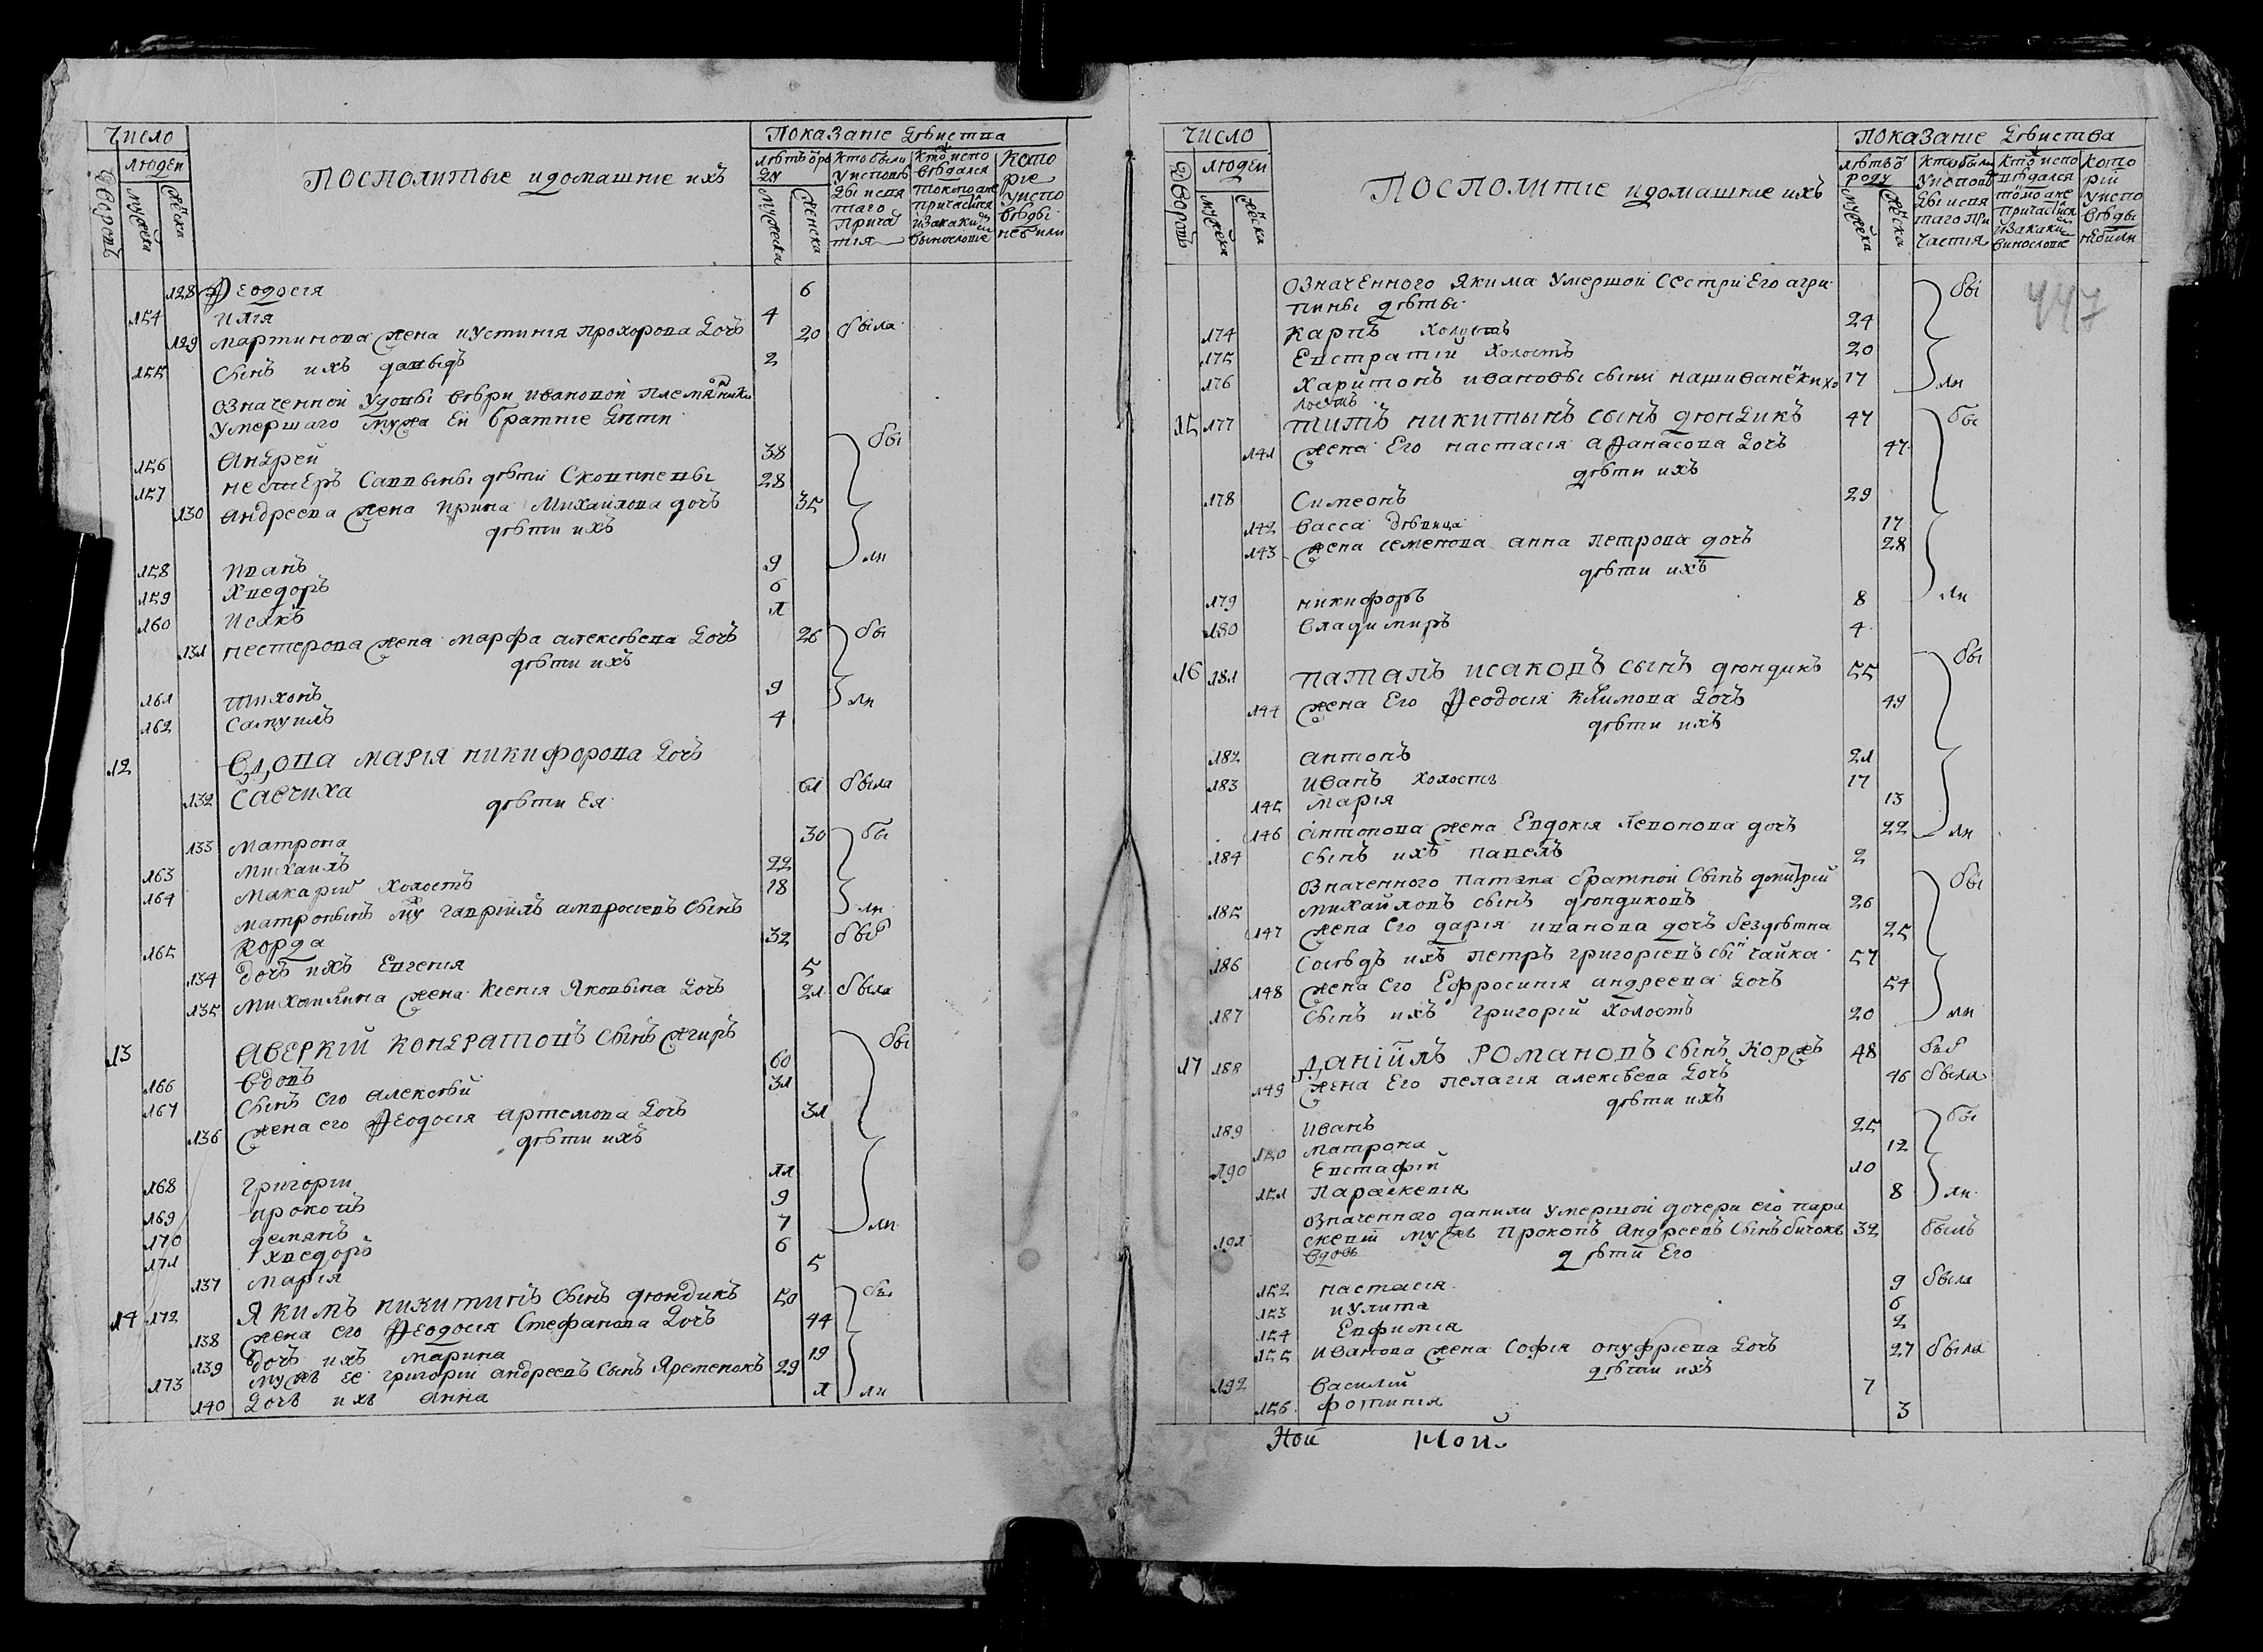 Число
людей
Дворовъ
мужеска
женска
Посполитые и домашние ихъ
Показание действа
летъ отъ роду
мужеска
женска
Кто были у исповеди и святаго причастия
Кто исповедался токмо а не причастился и за какимъ винословиемъ
Которие у исповеди не были
128 Ѳеодосия 6
154 Илия 4
129 Мартинова жена Иустиния Прохорова дочъ 20 была
155 Сынъ ихъ Давыдъ 2
означенной удовы Ивановой племянники
умершаго мужа ей братние дети
156 Андрей 38 бы
157 Нестеръ Саввыны дети 28
130 Андреева жена Ирина Михайлова дочъ 35
дети ихъ
158 Иванъ 9 ли
159 Хведоръ 6
160 Исакъ 1
131 Нестерова жена Марфа Алексеева дочъ 26 бы
дети ихъ
161 Тихонъ 9 ли
162 Самуилъ 4
12 Вдова Мария Никифорова дочъ
132 Савчиха 61 была
дети ея
133 Матрона 30 бы
163 Михаилъ 22
164 Макарий холостъ 18 ли
Матронинъ мужъ Гавриилъ Амвросиевъ сынъ
165 Корда 32 былъ
134 дочъ ихъ Евгения 5
135 Михайлина жена Ксения Яковына дочъ 21 была
13 Аверкий Кондратовъ сынъ Жиръ бы
166 вдовъ 60
167 Сынъ его Алексей 31
136 жена его Ѳеодосия Артемова дочъ 31
дети ихъ
168 Григорий 11
169 Прокопъ 9
170 Демянъ 7 ли
171 Хведоръ 6
137 Мария 5
14 172 Якимъ Никитинъ сынъ Дюндикъ 50 бы
138 жена его Ѳеодосия Стефанова дочъ 44
139 дочъ ихъ Марина 19
173 мужъ ее Григорий Андреевъ сынъ Яременокъ 29
140 дочъ ихъ Анна 1 ли
Число
людей
Дворовъ
мужеска
женска
Посполитие и домашние ихъ
Показание действа
летъ отъ роду
мужеска
женска
Кто были у исповеди и святаго причастия
Кто исповедался токмо а не причастился и за какимъ винословиемъ
Которий у исповеди не били
447
означенного Якима умершой сестри его Агри
пины дети бы
174 Карпъ холостъ 24
175 Евстратий холостъ 20
176 Харитонъ Ивановы сыны хо 17 ли
лостъ
15 177 Титъ Никитынъ сынъ Дюндикъ 47 бы
141 жена его Настасия Аѳанасова дочъ 47
дети ихъ
178 Симеонъ 29
142 Васса девица 17
143 жена Семенова Анна Петрова дочъ 28
дети ихъ
179 Никифоръ 8 ли
180 Владимиръ 4
16 181 Патапъ Исаковъ сынъ Дюндикъ 55 бы
144 жена его Ѳеодосия Климова дочъ 49
дети ихъ
182 Антонъ 21
183 Иванъ холостъ 17
145 Мария 13
146 Антонова жена Евдокия Левонова дочъ 22 ли
184 Сынъ ихъ Павелъ 2
означенного Патапа братной сынъ Дмитрий бы
185 Михайловъ сынъ Дюндиковъ 26
147 жена его Дария Иванова дочъ бездетна 25
186 Соседъ ихъ Петръ Григориевъ сынъ Чайка 57
148 жена его Ефросиния Андреева дочъ 54
187 Сынъ ихъ Григорий холостъ 20 ли
17 188 Даниилъ Романовъ сынъ Коржъ 48 былъ
149 жена его Пелагия Алексеева дочъ 46 была
дети ихъ
189 Иванъ 25 бы
150 Матрона 12
190 Евстафий 10
151 Параскевия 8 ли
означенного Данили умершой дочери его Пара
191 скевии мужъ Прокопъ Андреевъ сынъ Бичокъ 32 былъ
вдовъ дети его
152 Настасия 9 была
153 Иулита 6
154 Евфимия 2
155 Иванова жена София Онуфриева дочъ 27 была
дети ихъ
192 Василий 7
156 Фотиния 3